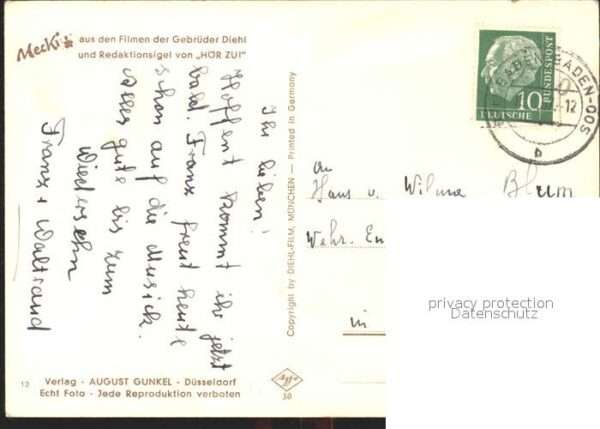 Mecki aus den Filmen der Gebrüder Diehl
und Redaktionsigel von „HÖR ZU!"
Ihr lieben!
Hoffent kommt ihr jetzt
bald. Franz freut heute
schon auf die Musick.
Alles gute bis zum
Wiedersehn
Franz + Waltraud
Copyright by DIEHL-FILM, MÜNCHEN — Printed in Germany
BADEN-BADEN-OOS
-12
b
10
DEUTSCHE
BUNDESPOST
An
Hans u. Wilma Blum
Wehr.
in
privacy protection
Datenschutz
13 Verlag - AUGUST GUNKEL - Düsseldorf
Echt Foto - Jede Reproduktion verboten
Agfa
50